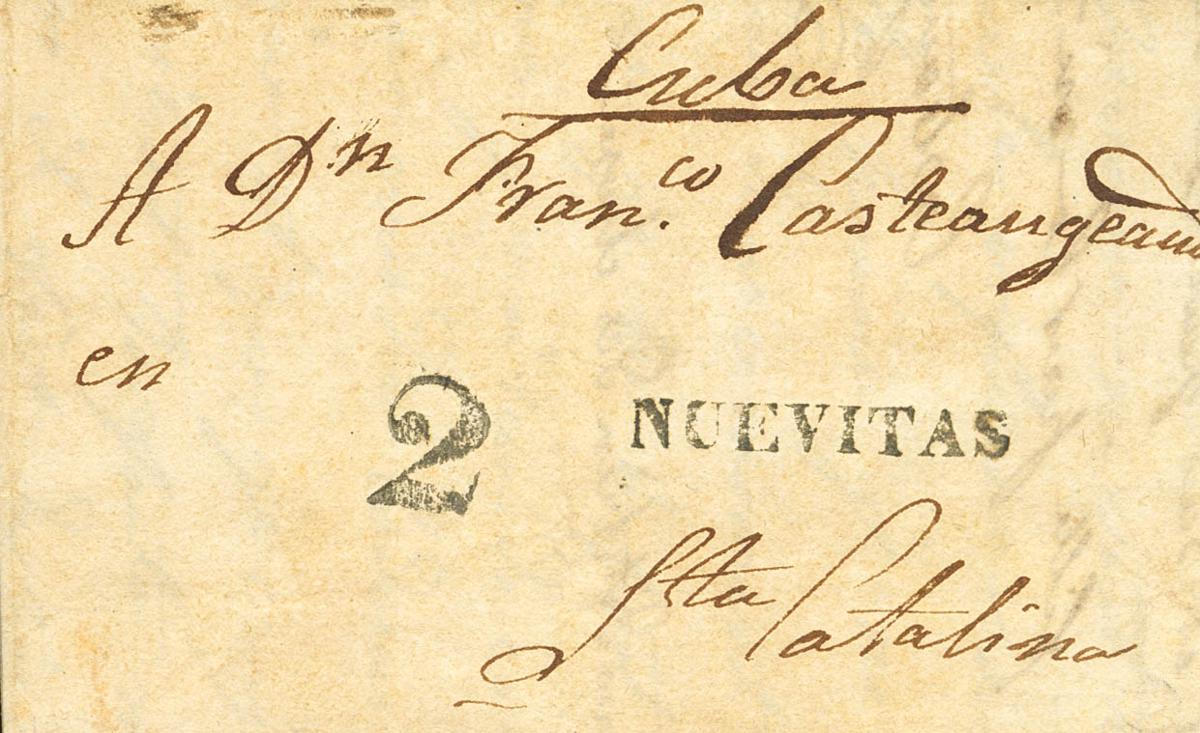 Cuba
A Dn Fran.co Casteaugeau
en
2 NUEVITAS
Sta Catalina